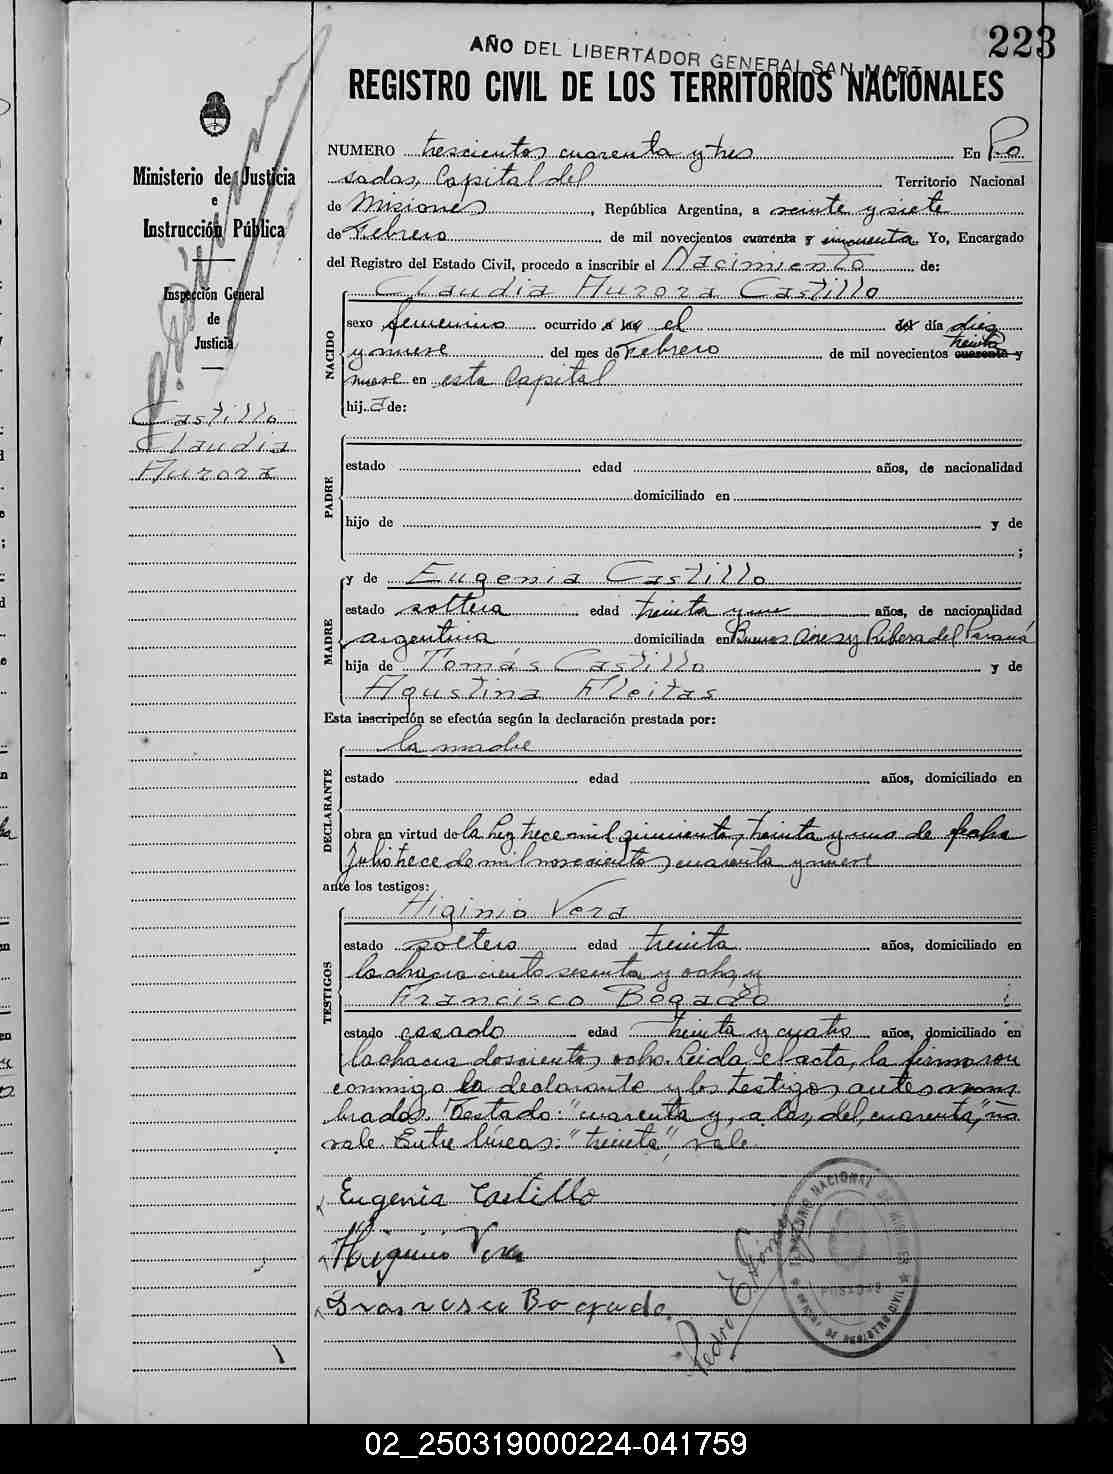 223
AÑO DEL LIBERTADOR GENERAL SAN MART
REGISTRO CIVIL DE LOS TERRITORIOS NACIONALES
Ministerio de Justicia
e
Instrucción Pública
Inspección General
de
Justicia
Castillo
Claudia
Aurora
NUMERO trescientos cuarenta y tres En Po
sadas, Capital del Territorio Nacional
de Misiones, República Argentina, a veinte y siete
de Febrero de mil novecientos cuarenta y cincuenta Yo, Encargado
del Registro del Estado Civil, procedo a inscribir el Nacimiento de:
NACIDO
Claudia Aurora Castillo
sexo femenino ocurrido a las el del día diez
y nueve del mes de Febrero de mil novecientos cuarenta y treinta
nueve en esta Capital
hija de:
PADRE
estado edad años, de nacionalidad
domiciliado en
hijo de y de
;
MADRE
y de Eugenia Castillo
estado soltera edad treinta y un años, de nacionalidad
argentina domiciliada en Buenos Aires y Ribera del Paraná
hija de Tomás Castillo y de
Agustina Fleitas
Esta inscripción se efectúa según la declaración prestada por:
DECLARANTE
la madre
estado edad años, domiciliado en
obra en virtud de la ley trece mil quinientos treinta y uno de fecha
Julio trece de mil novecientos cuarenta y nueve
ante los testigos:
TESTIGOS
Higinio Vera
estado soltero edad treinta años, domiciliado en
la chacra ciento sesenta y ocho, y
Francisco Bogado
estado casado edad treinta y cuatro años, domiciliado en
la chacra doscientos ocho. Leida el acta, la firmaron
conmigo la declarante y los testigos antes nom
brados. Testado: "cuarenta y, a las, del, cuarenta", no
vale. Entre líneas: "treinta", vale.
Eugenia Castillo
Higinio Vera
Francisco Bogado
Pedro E.
TERRITORIO NACIONAL DE MISIONES
POSADAS
DE REGISTRO CIVIL
02_250319000224-041759